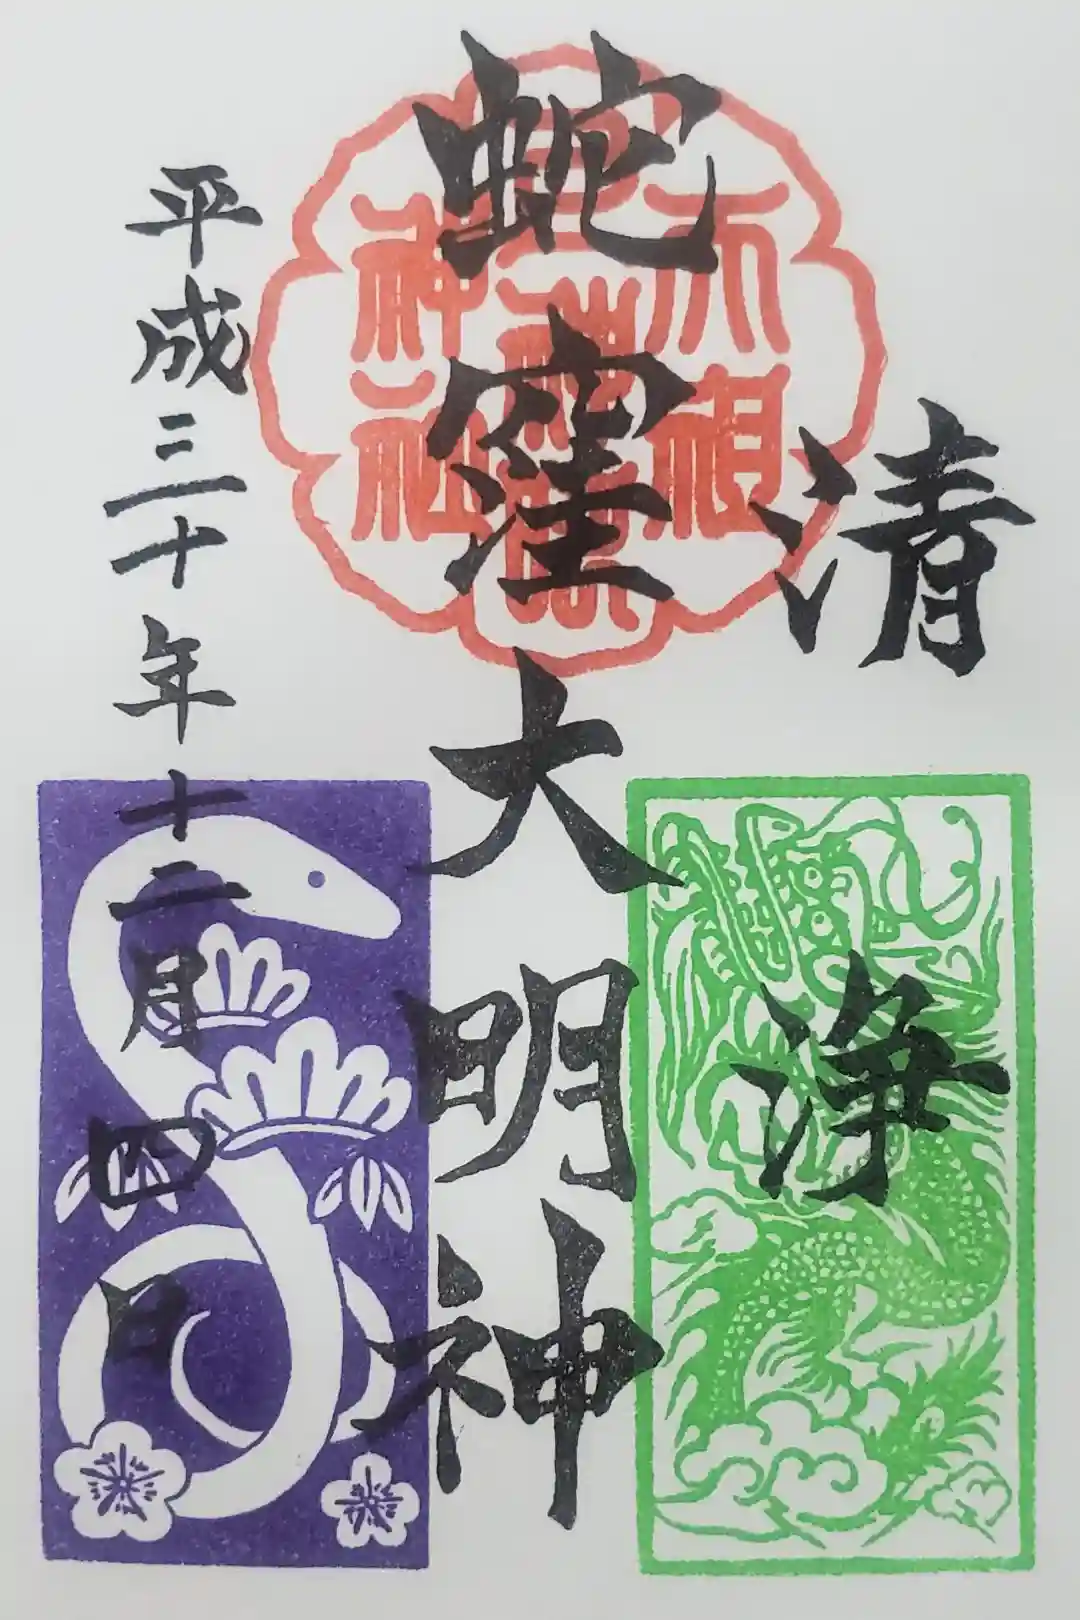 清浄
蛇窪大明神
平成三十年十二月四日
天祖
神社